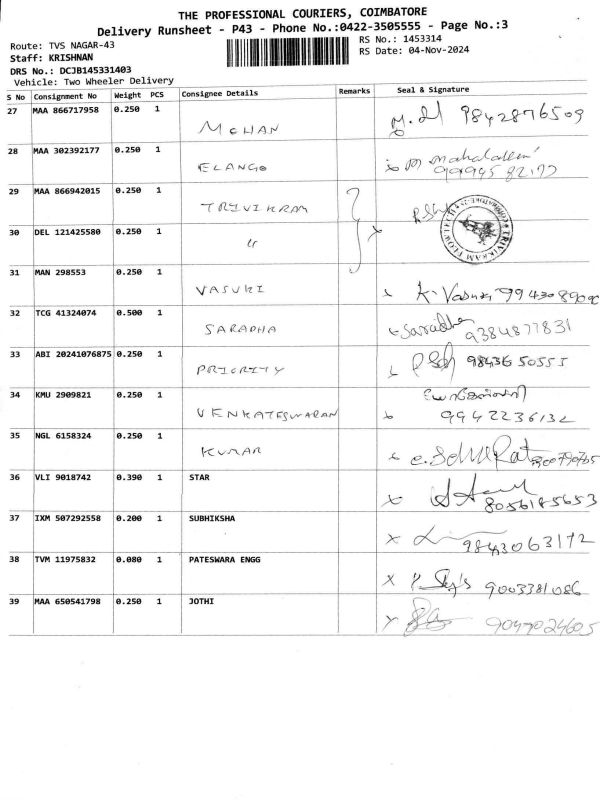 THE PROFESSIONAL COURIERS, COIMBATORE
Delivery Runsheet - P43 - Phone No.:0422-3505555 - Page No.:3
Route: TVS NAGAR-43 RS No.: 1453314
Staff: KRISHNAN RS Date: 04-Nov-2024
DRS No.: DCJB145331403
Vehicle: Two Wheeler Delivery
S No Consignment No Weight PCS Consignee Details Remarks Seal & Signature
27 MAA 866717958 0.250 1 MOHAN 9842876509
28 MAA 302392177 0.250 1 ELANGO
29 MAA 866942015 0.250 1 TRIVIKRAM
30 DEL 121425580 0.250 1 "
31 MAN 298553 0.250 1 VASUKI K. Vasuki
32 TCG 41324074 0.500 1 SARADHA Saradha 9384877831
33 ABI 20241076875 0.250 1 PRIORITY 98436 50555
34 KMU 2909821 0.250 1 VENKATESWARAN 9942236132
35 NGL 6158324 0.250 1 KUMAR
36 VLI 9018742 0.390 1 STAR 8056185653
37 IXM 507292558 0.200 1 SUBHIKSHA 9843063172
38 TVM 11975832 0.080 1 PATESWARA ENGG 9003381086
39 MAA 650541798 0.250 1 JOTHI 9047024605